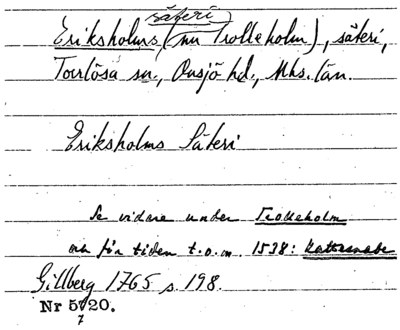 säteri
Eriksholms (nu Trolleholm), säteri,
Torrlösa sn., Onsjö hd., Mhs. län.
Eriksholms Säteri
Se vidare under Trolleholm
och för tiden t.o.m. 1538: Kattesnabe
Gillberg 1765 s. 198.
Nr 5720.
7